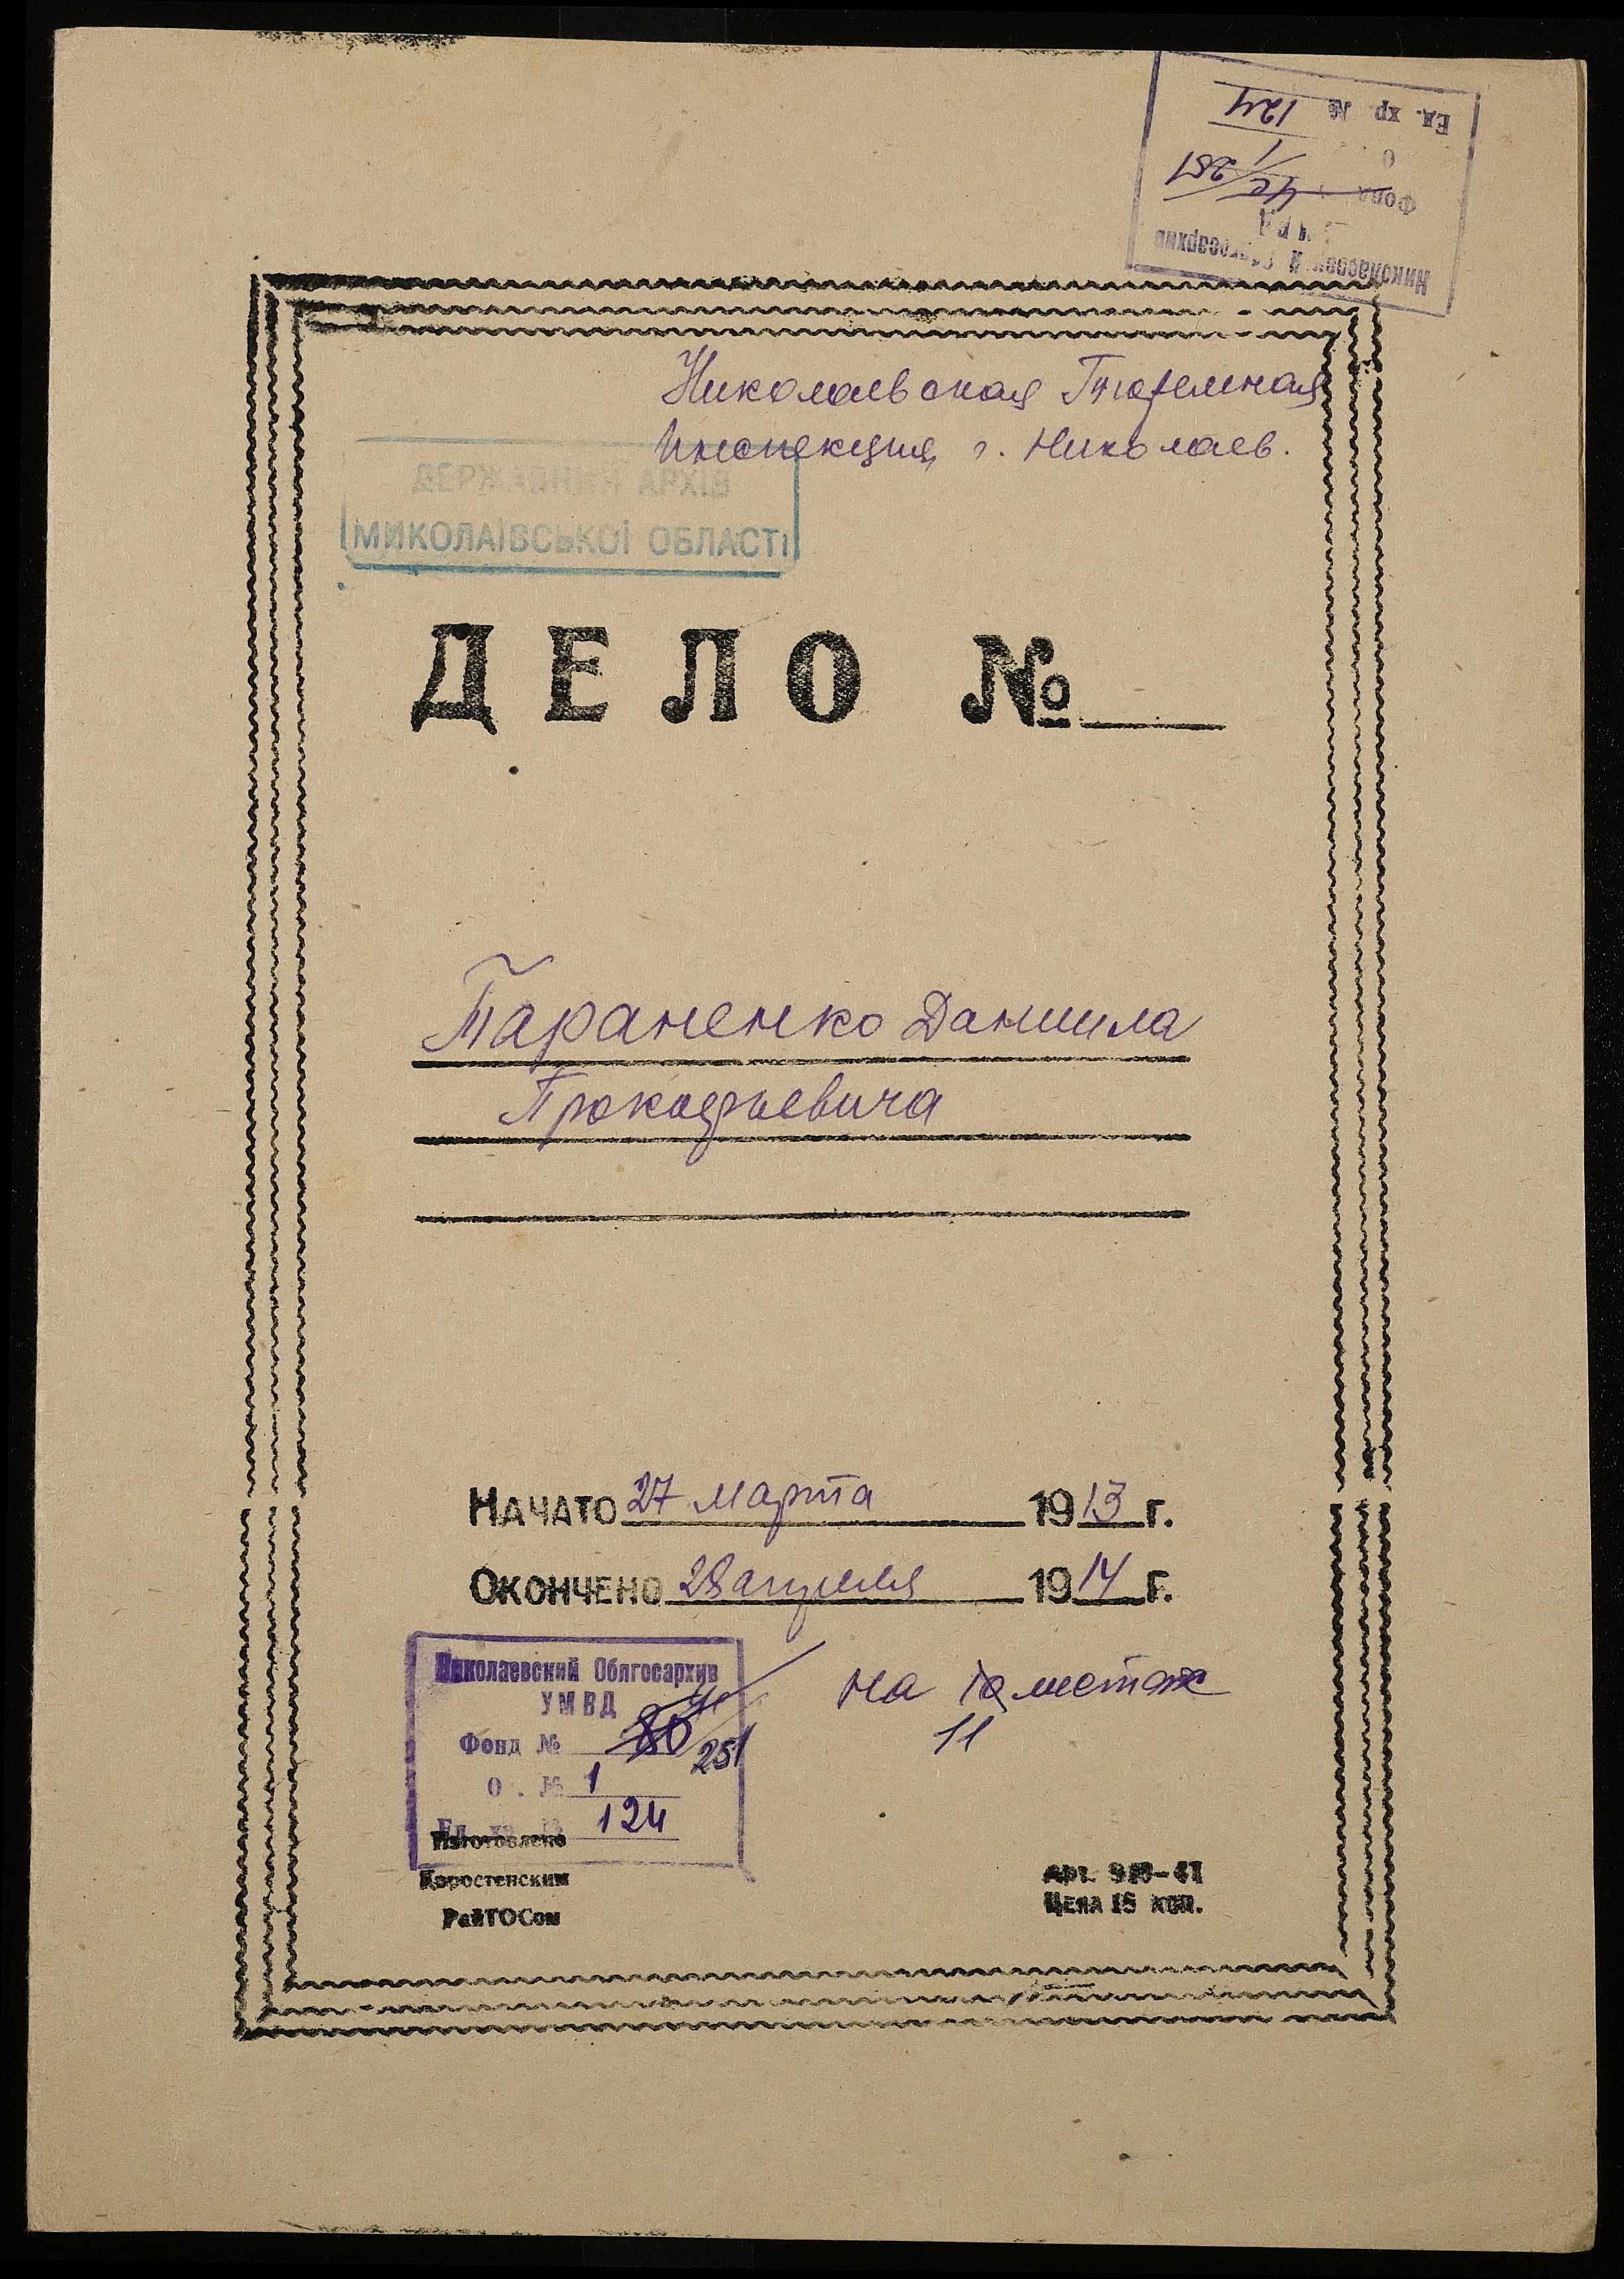 Николаевский Облгосархив
Фонд № 40/251
О 1
Ед. хр. № 124
Николаевская Тюремная
Инспекция г. Николаев.
ДЕРЖАВНИЙ АРХІВ
МИКОЛАЇВСЬКОЇ ОБЛАСТІ
ДЕЛО №
Тараненко Даниила
Прокофьевича
НАЧАТО 27 марта 1913 г.
ОКОНЧЕНО 28 апреля 1914 г.
Николаевский Облгосархив
УМВД
Фонд № 251
О . № 1
Ед. хр. № 124
на 10 листах
11
Изготовлено
Коростенским
РайТОСом
Цена 15 коп.